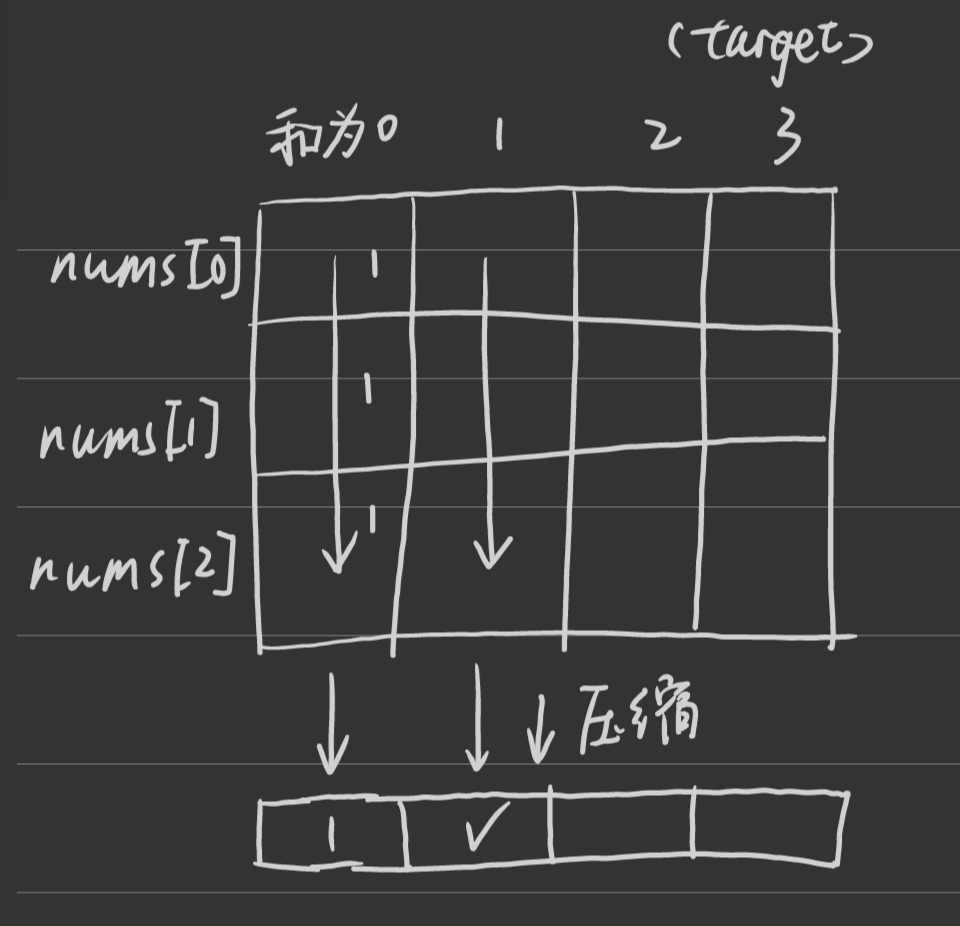 (target)
和为0 1 2 3
nums[0] 1
nums[1] 1
nums[2] 1
压缩
1 ✓